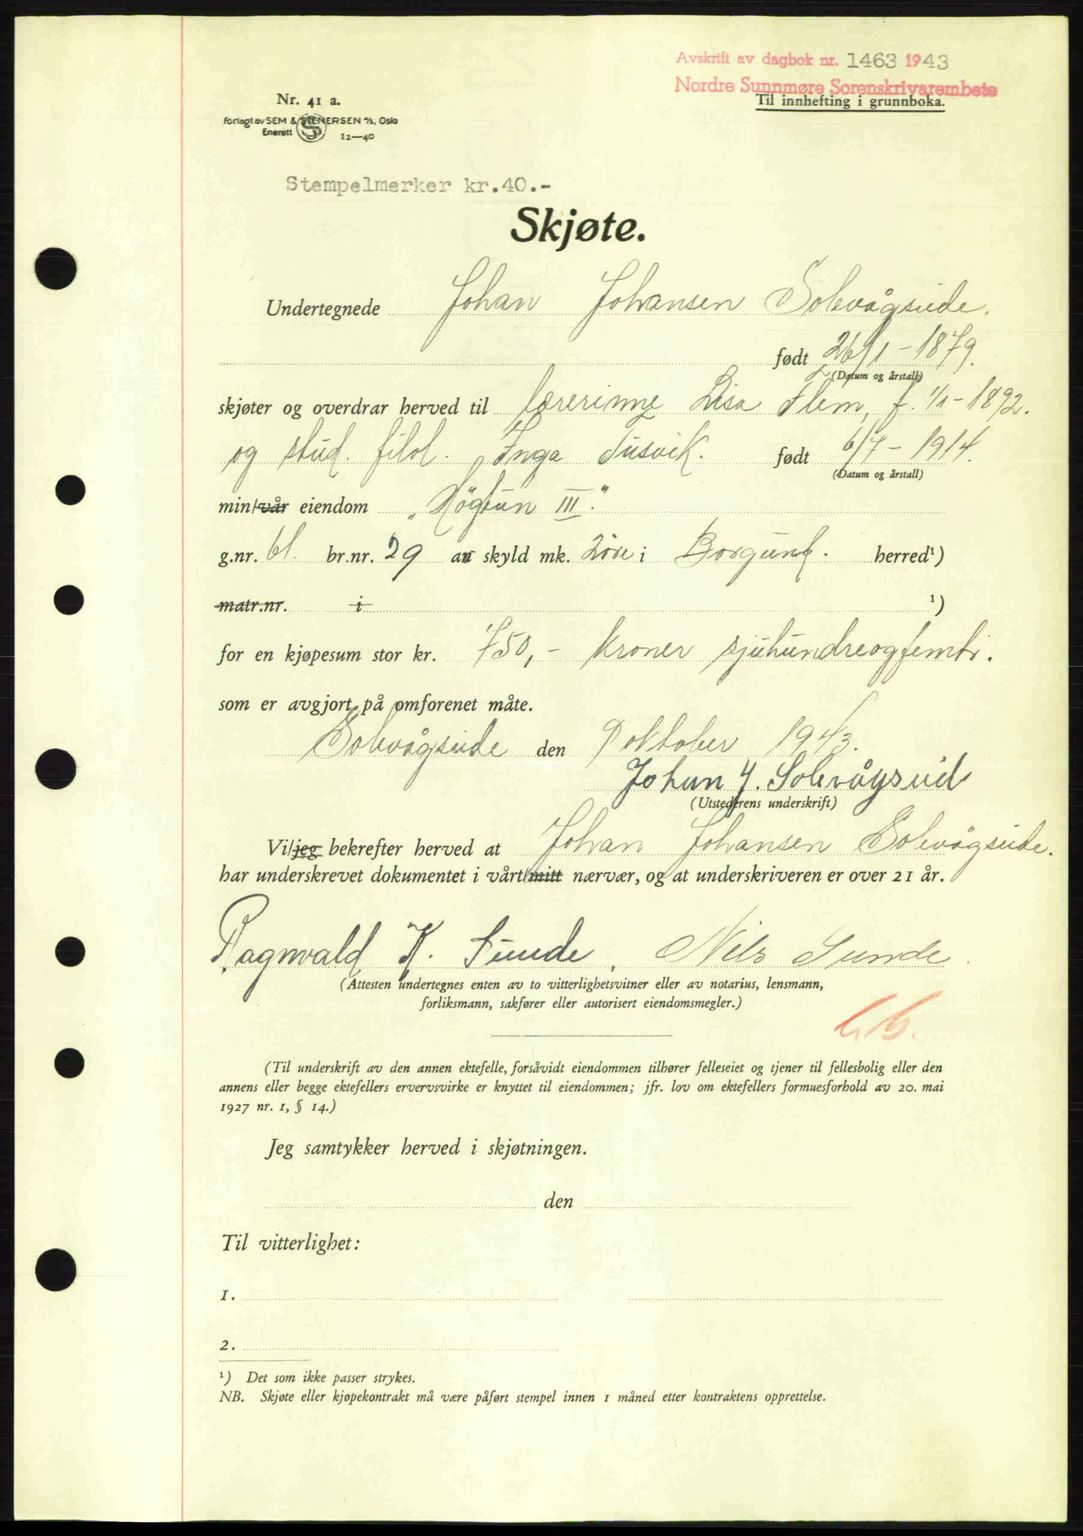 Avskrift av dagbok nr. 1463 1943
Nordre Sunnmøre Sorenskrivarembete
Til innhefting i grunnboka.
Nr. 41 a.
Forlagt av SEM & STENERSEN A/S, Oslo
Enerett S 12—40
Stempelmerker kr.40.-
Skjøte.
Undertegnede Johan Johansen Solevågseide.
født 26/1 - 1879.
(Datum og årstall)
skjøter og overdrar herved til lærerinne Lisa Flem, f. 1/1 - 1892.
og stud. filol. Inga Tusvik. født 6/7 - 1914.
(Datum og årstall)
min/vår eiendom „Høgtun III."
g.nr. 61. br.nr. 29 av skyld mk. 2 øre i Borgund. herred¹)
matr.nr. i ¹)
for en kjøpesum stor kr. 750,- kroner sjuhundreogfemti.
som er avgjort på omforenet måte.
Solevågseide den 9 oktober 1943.
Johan J. Solevågseid
(Utstederens underskrift)
Vi/jeg bekrefter herved at Johan Johansen Solevågseide.
har underskrevet dokumentet i vårt/mitt nærvær, og at underskriveren er over 21 år.
Ragnvald K. Sunde, Nils Sunde.
(Attesten undertegnes enten av to vitterlighetsvitner eller av notarius, lensmann,
forliksmann, sakfører eller autorisert eiendomsmegler.)
(Til underskrift av den annen ektefelle, forsåvidt eiendommen tilhører felleseiet og tjener til fellesbolig eller den
annens eller begge ektefellers ervervsvirke er knyttet til eiendommen; jfr. lov om ektefellers formuesforhold av 20. mai
1927 nr. 1, § 14.)
Jeg samtykker herved i skjøtningen.
den
Til vitterlighet:
1.
2.
¹) Det som ikke passer strykes.
NB. Skjøte eller kjøpekontrakt må være påført stempel innen 1 måned etter kontraktens opprettelse.